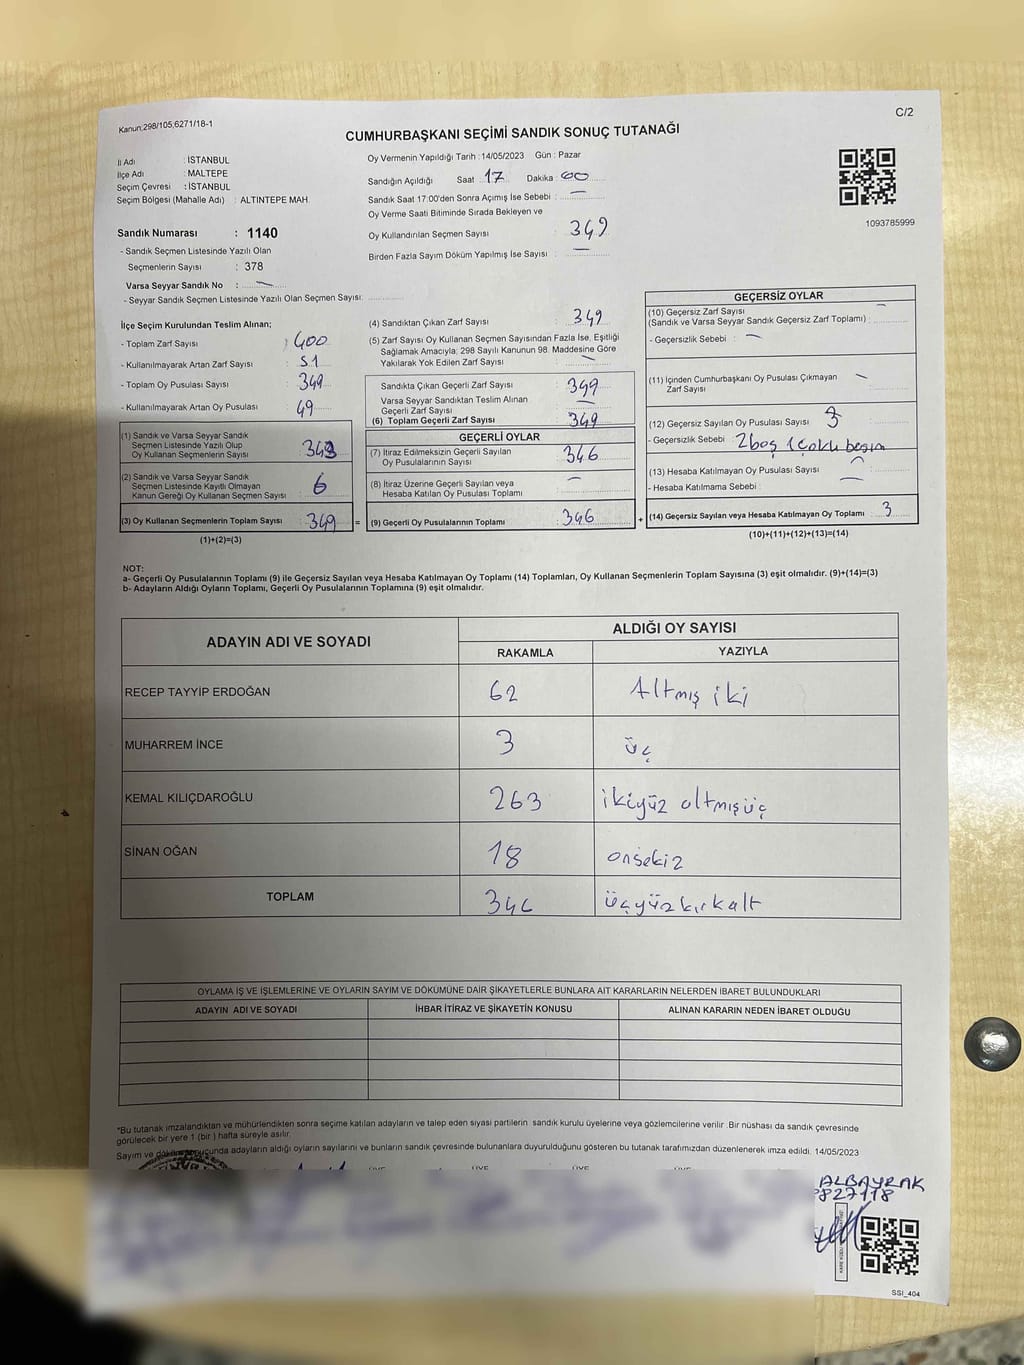 Kanun;298/105,6271/18-1
C/2
CUMHURBAŞKANI SEÇİMİ SANDIK SONUÇ TUTANAĞI
İl Adı : İSTANBUL
İlçe Adı : MALTEPE
Seçim Çevresi : İSTANBUL
Seçim Bölgesi (Mahalle Adı) : ALTINTEPE MAH.
Sandık Numarası : 1140
- Sandık Seçmen Listesinde Yazılı Olan
Seçmenlerin Sayısı : 378
Varsa Seyyar Sandık No : —
- Seyyar Sandık Seçmen Listesinde Yazılı Olan Seçmen Sayısı:
Oy Vermenin Yapıldığı Tarih : 14/05/2023 Gün : Pazar
Sandığın Açıldığı Saat 17 Dakika 00
Sandık Saat 17:00'den Sonra Açımış İse Sebebi : —
Oy Verme Saati Bitiminde Sırada Bekleyen ve
Oy Kullandırılan Seçmen Sayısı : 349
Birden Fazla Sayım Döküm Yapılmış İse Sayısı : —
1093785999
İlçe Seçim Kurulundan Teslim Alınan;
- Toplam Zarf Sayısı : 400
- Kullanılmayarak Artan Zarf Sayısı : 51
- Toplam Oy Pusulası Sayısı : 349
- Kullanılmayarak Artan Oy Pusulası : 49
(1) Sandık ve Varsa Seyyar Sandık
Seçmen Listesinde Yazılı Olup
Oy Kullanan Seçmenlerin Sayısı : 343
(2) Sandık ve Varsa Seyyar Sandık
Seçmen Listesinde Kayıtlı Olmayan
Kanun Gereği Oy Kullanan Seçmen Sayısı : 6
(3) Oy Kullanan Seçmenlerin Toplam Sayısı : 349 =
(1)+(2)=(3)
(4) Sandıktan Çıkan Zarf Sayısı : 349
(5) Zarf Sayısı Oy Kullanan Seçmen Sayısından Fazla İse, Eşitliği
Sağlamak Amacıyla; 298 Sayılı Kanunun 98. Maddesine Göre
Yakılarak Yok Edilen Zarf Sayısı : —
Sandıkta Çıkan Geçerli Zarf Sayısı : 349
Varsa Seyyar Sandıktan Teslim Alınan
Geçerli Zarf Sayısı : —
(6) Toplam Geçerli Zarf Sayısı : 349
GEÇERLİ OYLAR
(7) İtiraz Edilmeksizin Geçerli Sayılan
Oy Pusulalarının Sayısı : 346
(8) İtiraz Üzerine Geçerli Sayılan veya
Hesaba Katılan Oy Pusulası Toplamı : —
(9) Geçerli Oy Pusulalarının Toplamı : 346 +
GEÇERSİZ OYLAR
(10) Geçersiz Zarf Sayısı —
(Sandık ve Varsa Seyyar Sandık Geçersiz Zarf Toplamı) :
- Geçersizlik Sebebi : —
(11) İçinden Cumhurbaşkanı Oy Pusulası Çıkmayan —
Zarf Sayısı :
(12) Geçersiz Sayılan Oy Pusulası Sayısı : 3
- Geçersizlik Sebebi : 2boş 1çoklu basım
(13) Hesaba Katılmayan Oy Pusulası Sayısı : —
- Hesaba Katılmama Sebebi : —
(14) Geçersiz Sayılan veya Hesaba Katılmayan Oy Toplamı : 3
(10)+(11)+(12)+(13)=(14)
NOT:
a- Geçerli Oy Pusulalarının Toplamı (9) ile Geçersiz Sayılan veya Hesaba Katılmayan Oy Toplamı (14) Toplamları, Oy Kullanan Seçmenlerin Toplam Sayısına (3) eşit olmalıdır. (9)+(14)=(3)
b- Adayların Aldığı Oyların Toplamı, Geçerli Oy Pusulalarının Toplamına (9) eşit olmalıdır.
ADAYIN ADI VE SOYADI ALDIĞI OY SAYISI
RAKAMLA YAZIYLA
RECEP TAYYİP ERDOĞAN 62 Altmış iki
MUHARREM İNCE 3 üç
KEMAL KILIÇDAROĞLU 263 ikiyüz altmışüç
SİNAN OĞAN 18 onsekiz
TOPLAM 346 üçyüzkırkaltı
OYLAMA İŞ VE İŞLEMLERİNE VE OYLARIN SAYIM VE DÖKÜMÜNE DAİR ŞİKAYETLERLE BUNLARA AİT KARARLARIN NELERDEN İBARET BULUNDUKLARI
ADAYIN ADI VE SOYADI İHBAR İTİRAZ VE ŞİKAYETİN KONUSU ALINAN KARARIN NEDEN İBARET OLDUĞU
*Bu tutanak imzalandıktan ve mühürlendikten sonra seçime katılan adayların ve talep eden siyasi partilerin sandık kurulu üyelerine veya gözlemcilerine verilir .Bir nüshası da sandık çevresinde
görülecek bir yere 1 (bir ) hafta süreyle asılır.
Sayım ve döküm sonucunda adayların aldığı oyların sayılarını ve bunların sandık çevresinde bulunanlara duyurulduğunu gösteren bu tutanak tarafımızdan düzenlenerek imza edildi. 14/05/2023
ÜYE ÜYE ÜYE ÜYE
ALBAYRAK
827118
SSI_404